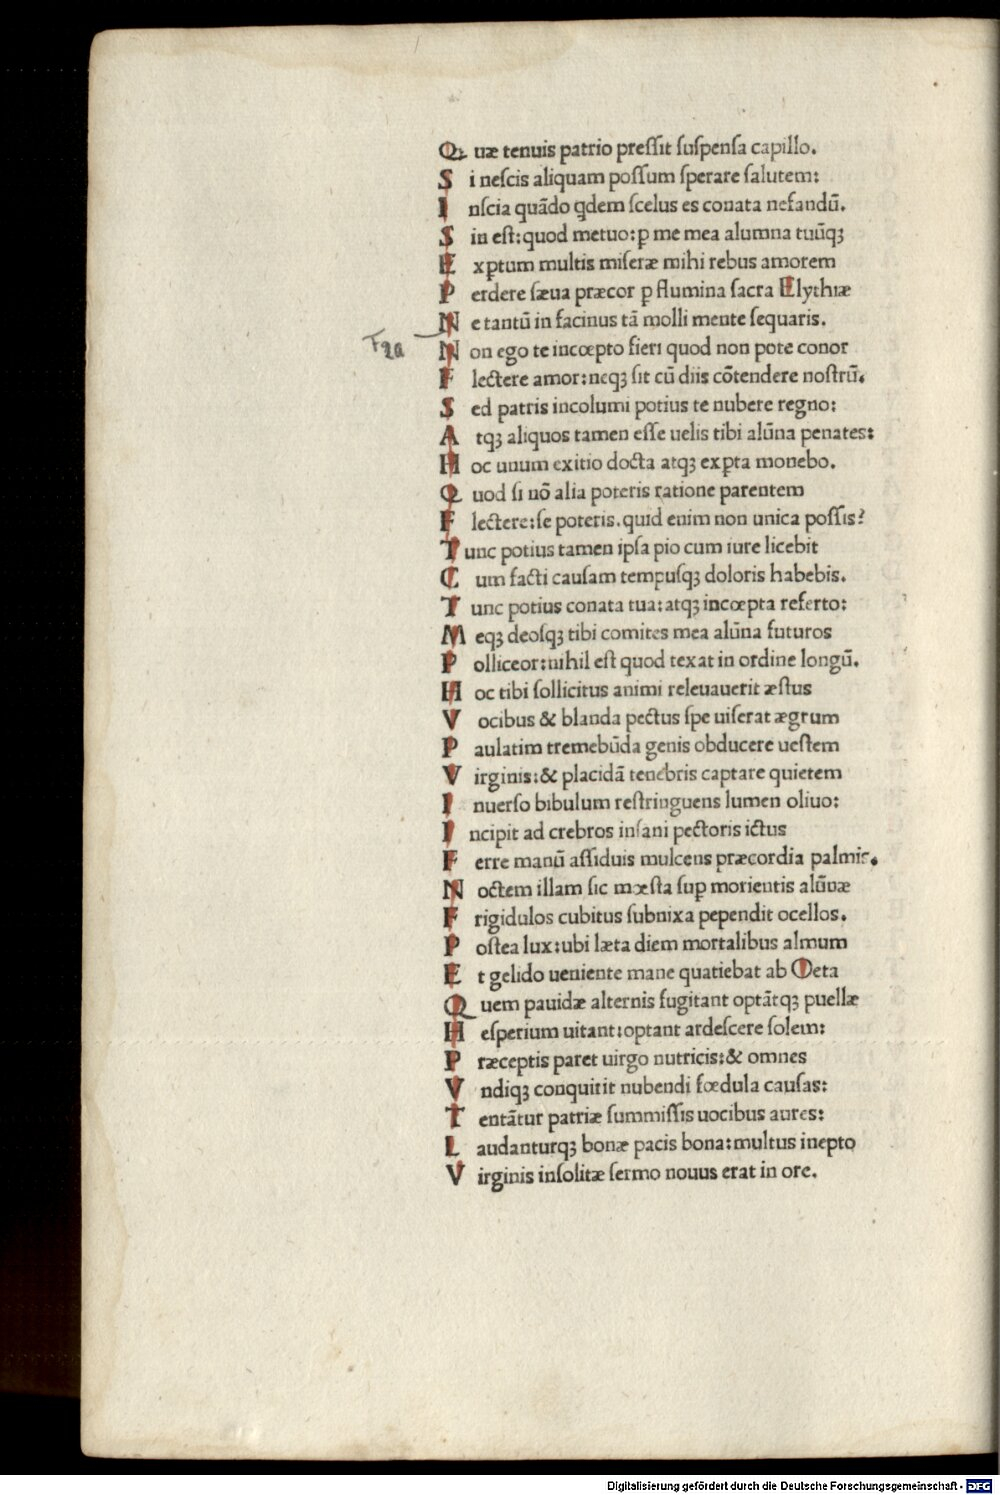 Quæ tenuis patrio preſſit ſuſpenſa capillo.
Si neſcis aliquam poſſum ſperare ſalutem:
Inſcia quādo qdem ſcelus es conata nefandū.
Sin eſt: quod metuo: p me mea alumna tuūqꝫ
Exptum multis miſeræ mihi rebus amorem
Perdere ſæua præcor p flumina ſacra Elythiæ
Ne tantū in facinus tā molli mente ſequaris.
Non ego te incœpto fieri quod non pote conor
Flectere amor: neqꝫ ſit cū diis cōtendere noſtrū.
Sed patris incolumi potius te nubere regno:
Atqꝫ aliquos tamen eſſe uelis tibi alūna penates:
Hoc unum exitio docta atqꝫ expta monebo.
Quod ſi nō alia poteris ratione parentem
Flectere: ſe poteris. quid enim non unica poſſis?
Tunc potius tamen ipſa pio cum iure licebit
Cum facti cauſam tempuſqꝫ doloris habebis.
Tunc potius conata tua: atqꝫ incœpta referto:
Meqꝫ deoſqꝫ tibi comites mea alūna futuros
Polliceor: nihil eſt quod texat in ordine longū.
Hoc tibi ſollicitus animi releuauerit æſtus
Vocibus & blanda pectus ſpe uiſerat ægrum
Paulatim tremebūda genis obducere ueſtem
Virginis: & placidā tenebris captare quietem
Inuerſo bibulum reſtringuens lumen oliuo:
Incipit ad crebros inſani pectoris ictus
Ferre manū aſſiduis mulcens præcordia palmis.
Noctem illam ſic mœſta ſup morientis alūnæ
Frigidulos cubitus ſubnixa pependit ocellos.
Poſtea lux: ubi læta diem mortalibus almum
Et gelido ueniente mane quatiebat ab Oeta
Quem pauidæ alternis fugitant optātqꝫ puellæ
Heſperium uitant: optant ardeſcere ſolem:
Præceptis paret uirgo nutricis: & omnes
Vndiqꝫ conquitit nubendi fœdula cauſas:
Tentātur patriæ ſummiſſis uocibus aures:
Laudanturqꝫ bonæ pacis bona: multus inepto
Virginis inſolitæ ſermo nouus erat in ore.
Digitalisierung gefördert durch die Deutsche Forschungsgemeinschaft - DFG